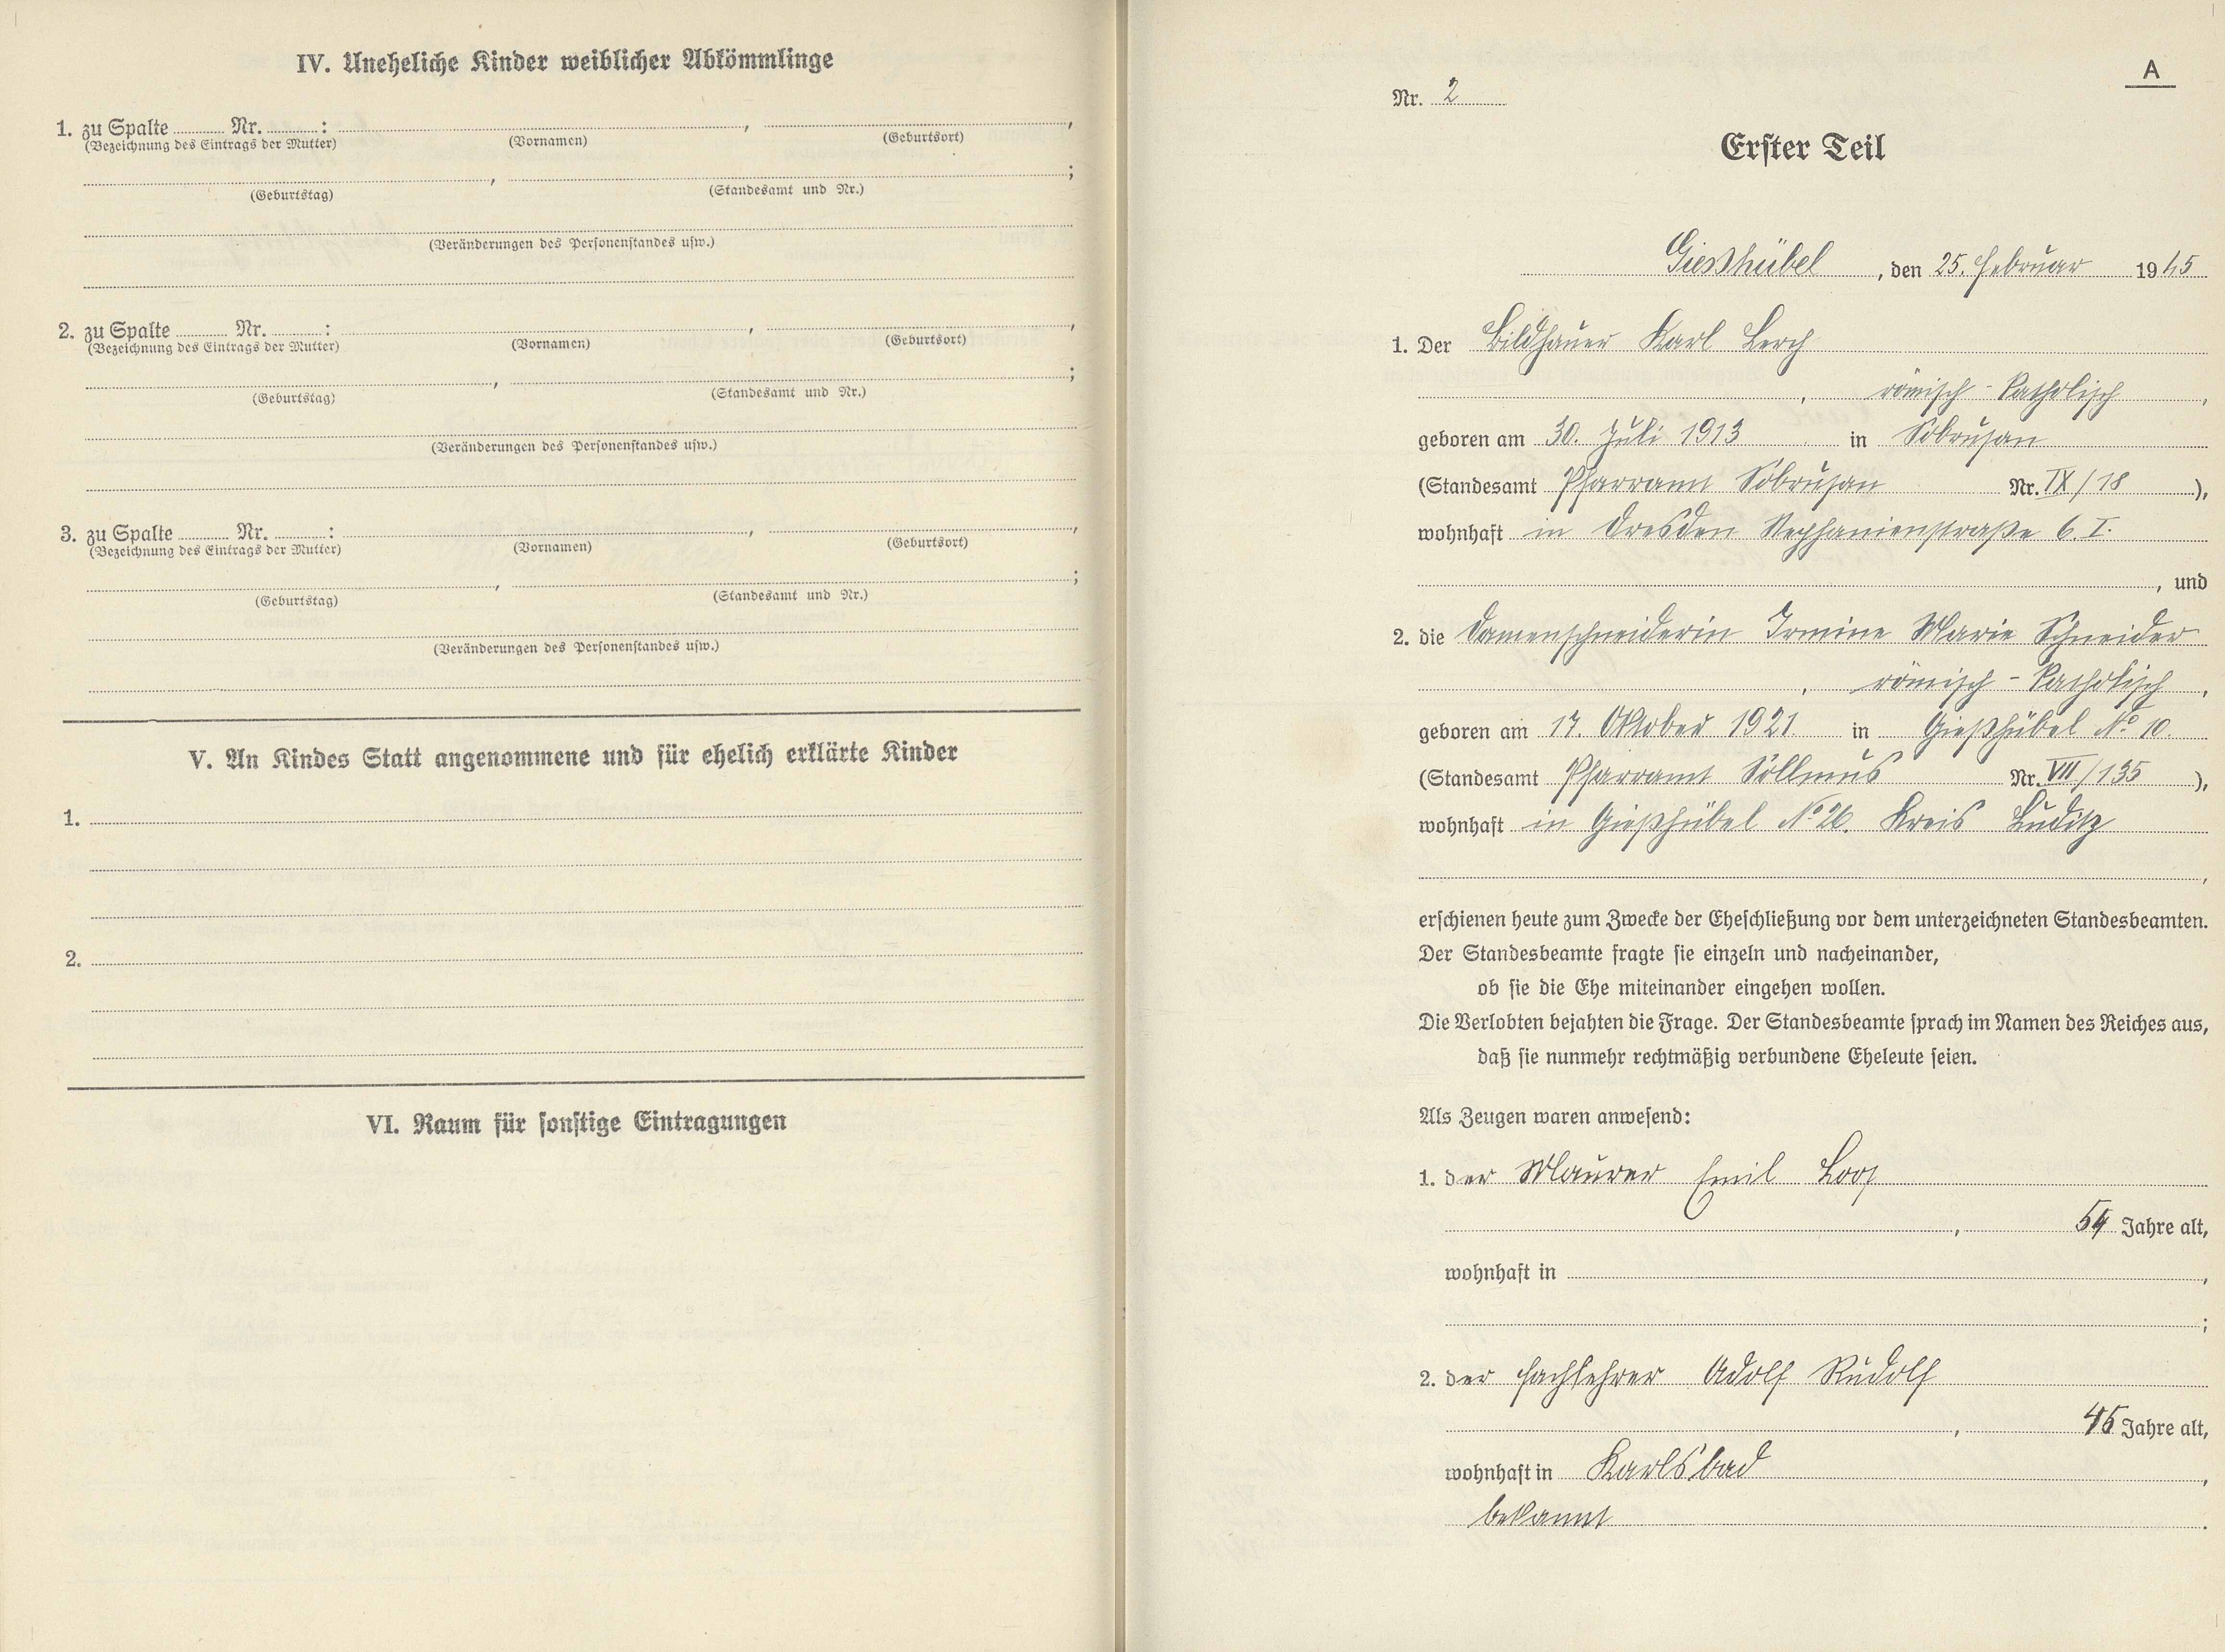 IV. Uneheliche Kinder weiblicher Abkömmlinge
1. zu Spalte ........ Nr. ........ : ........ , ........ ,
(Bezeichnung des Eintrags der Mutter) (Vornamen) (Geburtsort)
........ , ........ ;
(Geburtstag) (Standesamt und Nr.)
(Veränderungen des Personenstandes usw.)
2. zu Spalte ........ Nr. ........ : ........ , ........ ,
(Bezeichnung des Eintrags der Mutter) (Vornamen) (Geburtsort)
........ , ........ ;
(Geburtstag) (Standesamt und Nr.)
(Veränderungen des Personenstandes usw.)
3. zu Spalte ........ Nr. ........ : ........ , ........ ,
(Bezeichnung des Eintrags der Mutter) (Vornamen) (Geburtsort)
........ , ........ ;
(Geburtstag) (Standesamt und Nr.)
(Veränderungen des Personenstandes usw.)
V. An Kindes Statt angenommene und für ehelich erklärte Kinder
1.
2.
VI. Raum für sonstige Eintragungen
A
Nr. 2
Erster Teil
Gießhübel , den 25. Februar 1945
1. Der Bildhauer Karl Lerch
, römisch - katholisch ,
geboren am 30. Juli 1913 in Sobrusan
(Standesamt Pfarramt Sobrusan Nr. IX/18 ),
wohnhaft in Dresden Stephanienstraße 6. I.
, und
2. die Damenschneiderin Irmine Marie Schneider
, römisch - katholisch ,
geboren am 17. Oktober 1921 in Gießhübel No. 10.
(Standesamt Pfarramt Sollmus Nr. VII/135 ),
wohnhaft in Gießhübel No 26. Kreis Luditz
,
erschienen heute zum Zwecke der Eheschließung vor dem unterzeichneten Standesbeamten.
Der Standesbeamte fragte sie einzeln und nacheinander,
ob sie die Ehe miteinander eingehen wollen.
Die Verlobten bejahten die Frage. Der Standesbeamte sprach im Namen des Reiches aus,
daß sie nunmehr rechtmäßig verbundene Eheleute seien.
Als Zeugen waren anwesend:
1. der Maurer Emil Loos
, 54 Jahre alt,
wohnhaft in ,
;
2. der Fachlehrer Adolf Rudolf
, 45 Jahre alt,
wohnhaft in Karlsbad ,
bekannt .